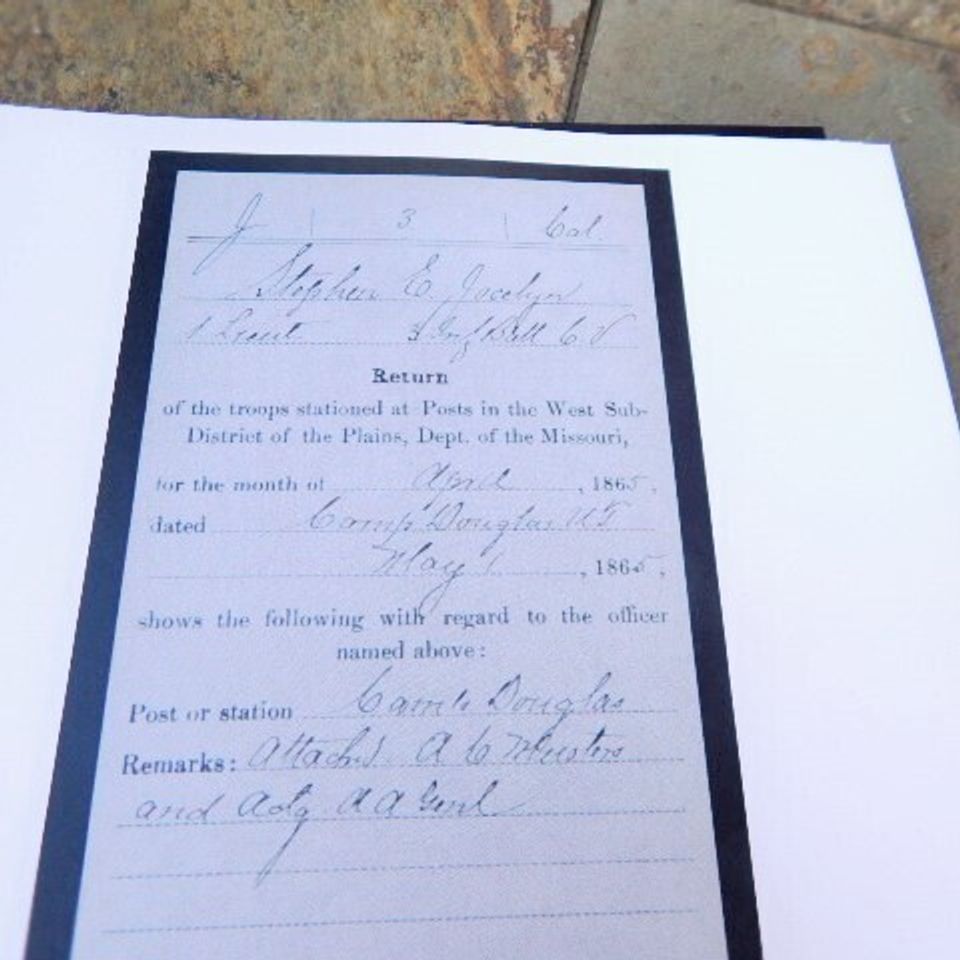 J | 3 | Cal.
Stephen E. Jocelyn
1 Lieut 3 Inf Batt C V
Return
of the troops stationed at Posts in the West Sub-
District of the Plains, Dept. of the Missouri,
for the month of April, 1865,
dated Camp Douglas U.T
May 1, 1865,
shows the following with regard to the officer
named above:
Post or station Camp Douglas
Remarks: Attachd. A C Musters
and Actg A A Genl